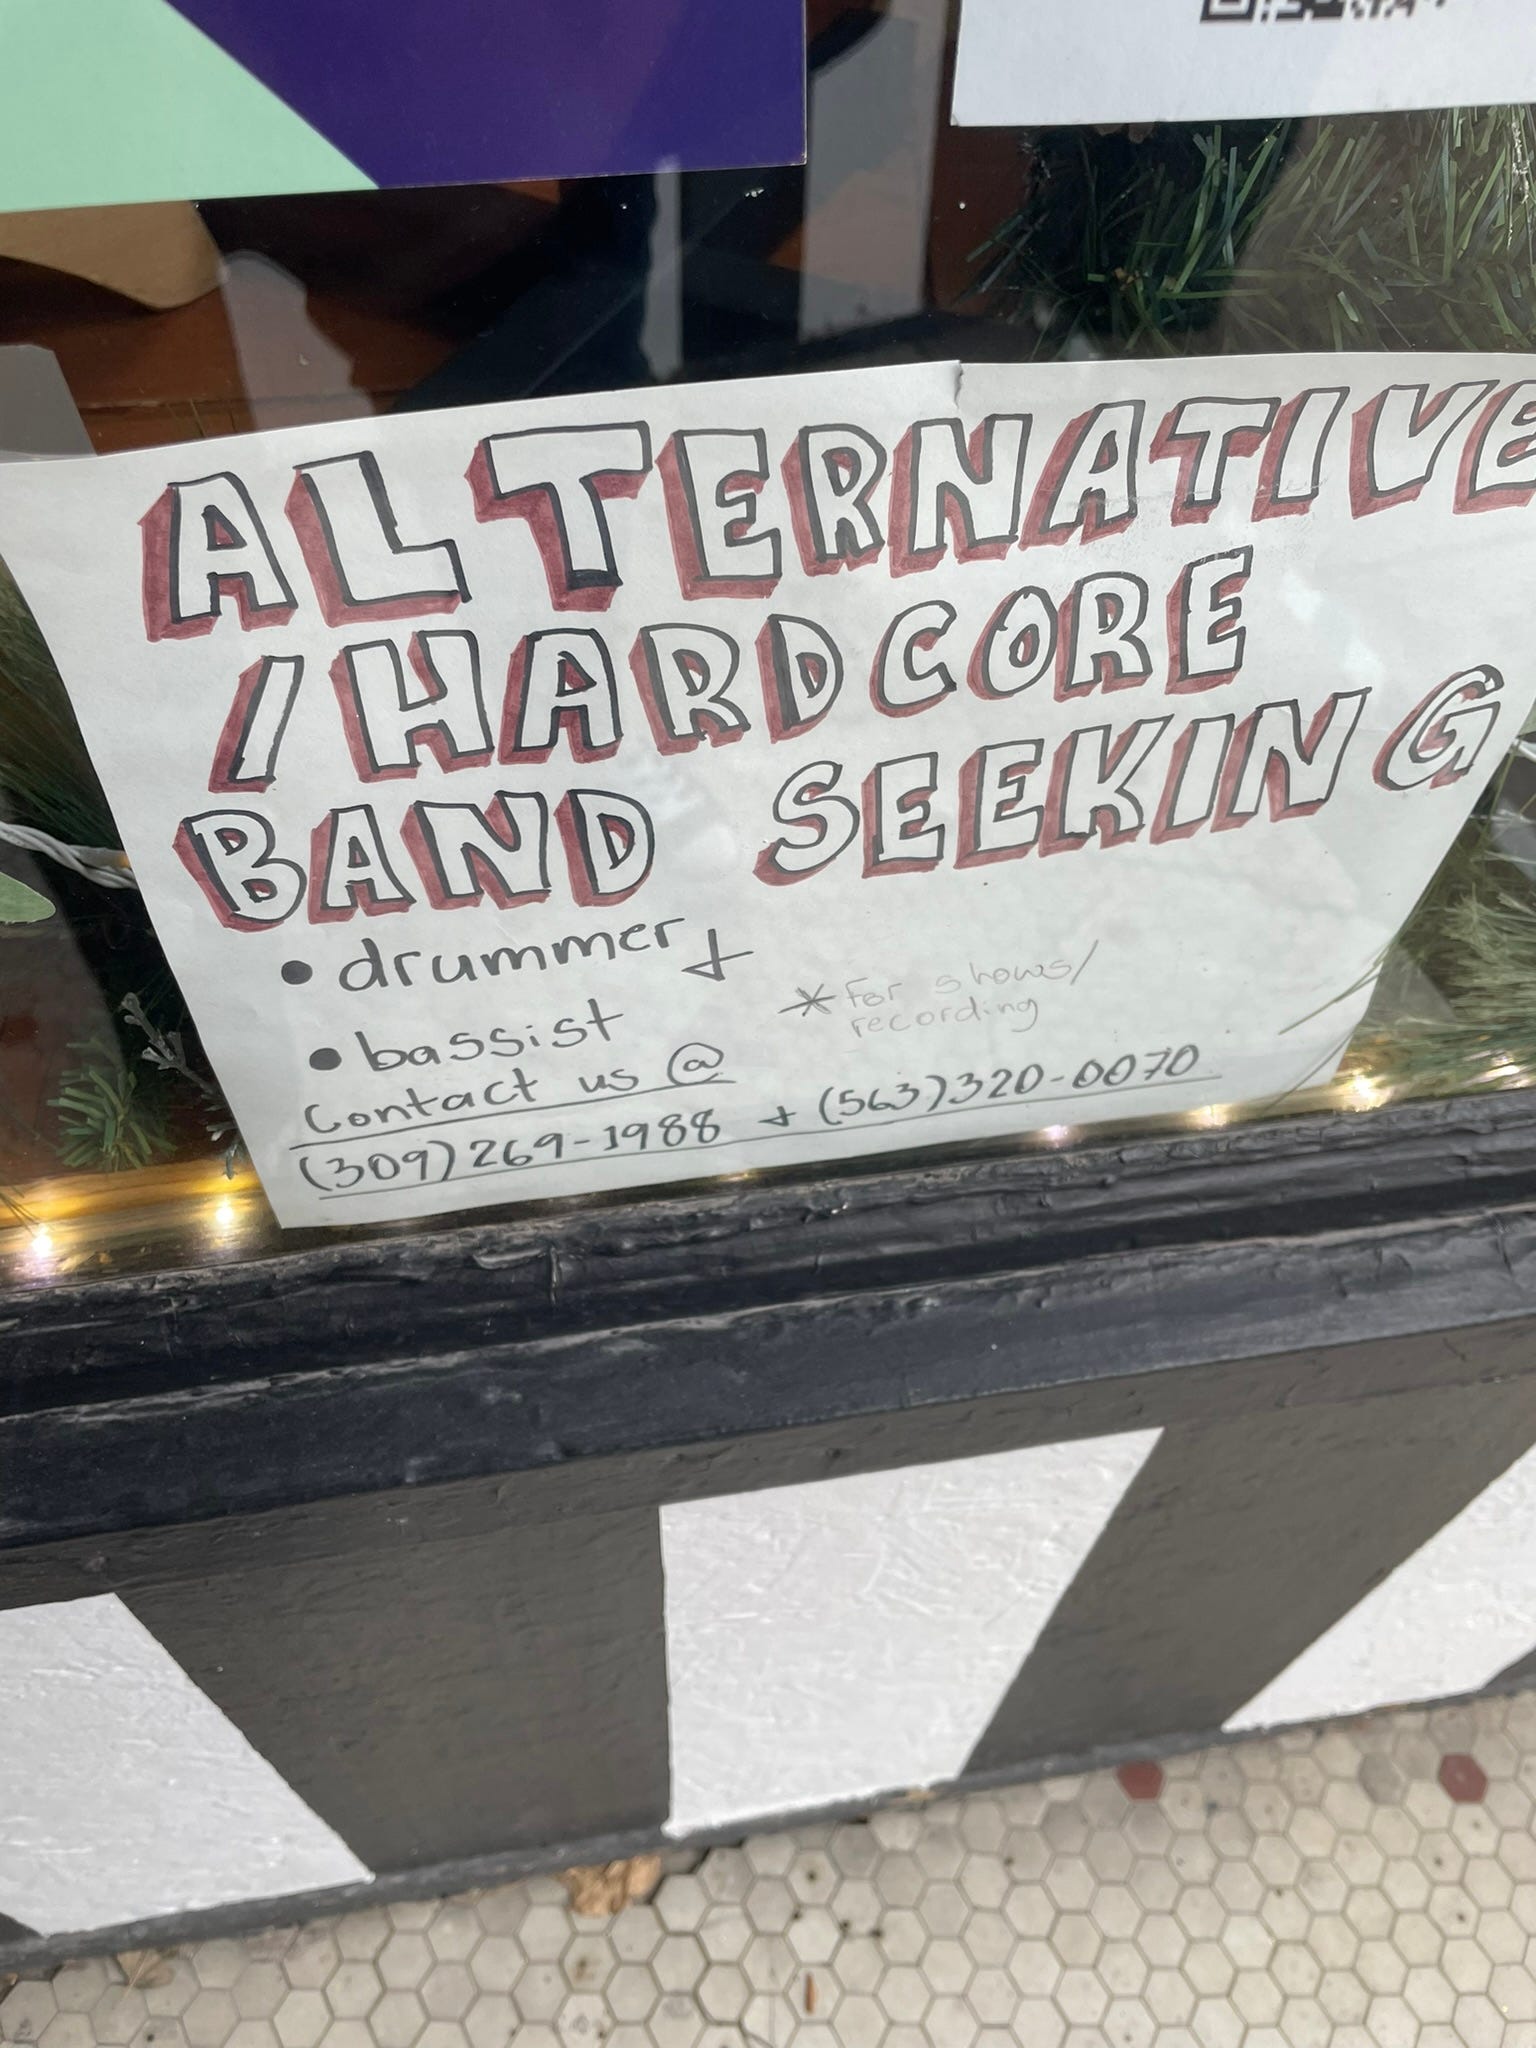 ALTERNATIVE
/HARDCORE
BAND SEEKING
• drummer +
• bassist
* For shows/
recording
Contact us @
(309)269-1988 + (563)320-0070